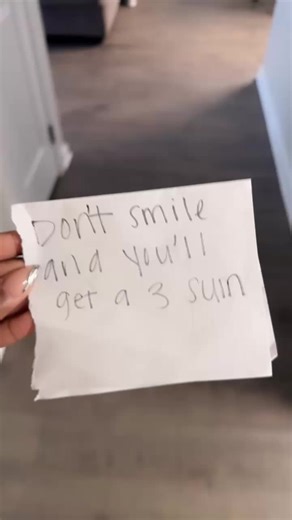 Don't smile
and you'll
get a 3 suin